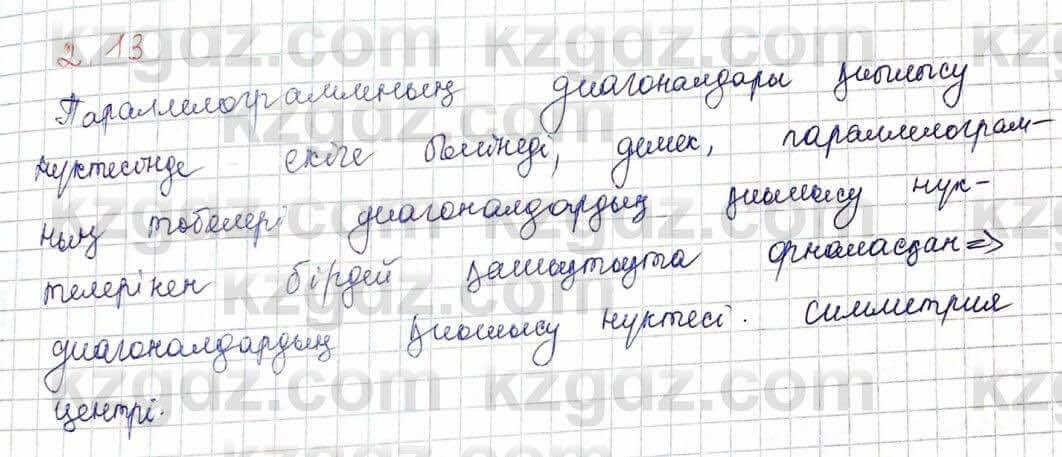 2.13
Параллелограммның диагоналдары қиылысу
нүктесінде екіге бөлінеді, демек, параллелограм-
ның төбелері диагоналдардың қиылысу нүк-
телерінен бірдей қашықтықта орналасқан =>
диагоналдардың қиылысу нүктесі. симметрия
центрі.
kzgdz.com kzgdz.com kzgdz.com